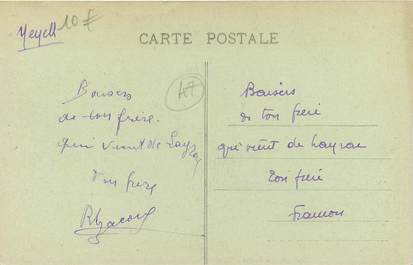 10€
CARTE POSTALE
47
Baisers
de ton frère.
qui vient de Layrac
Ton frère
Baisers
de ton frère
qui vient de Layrac
Ton frère